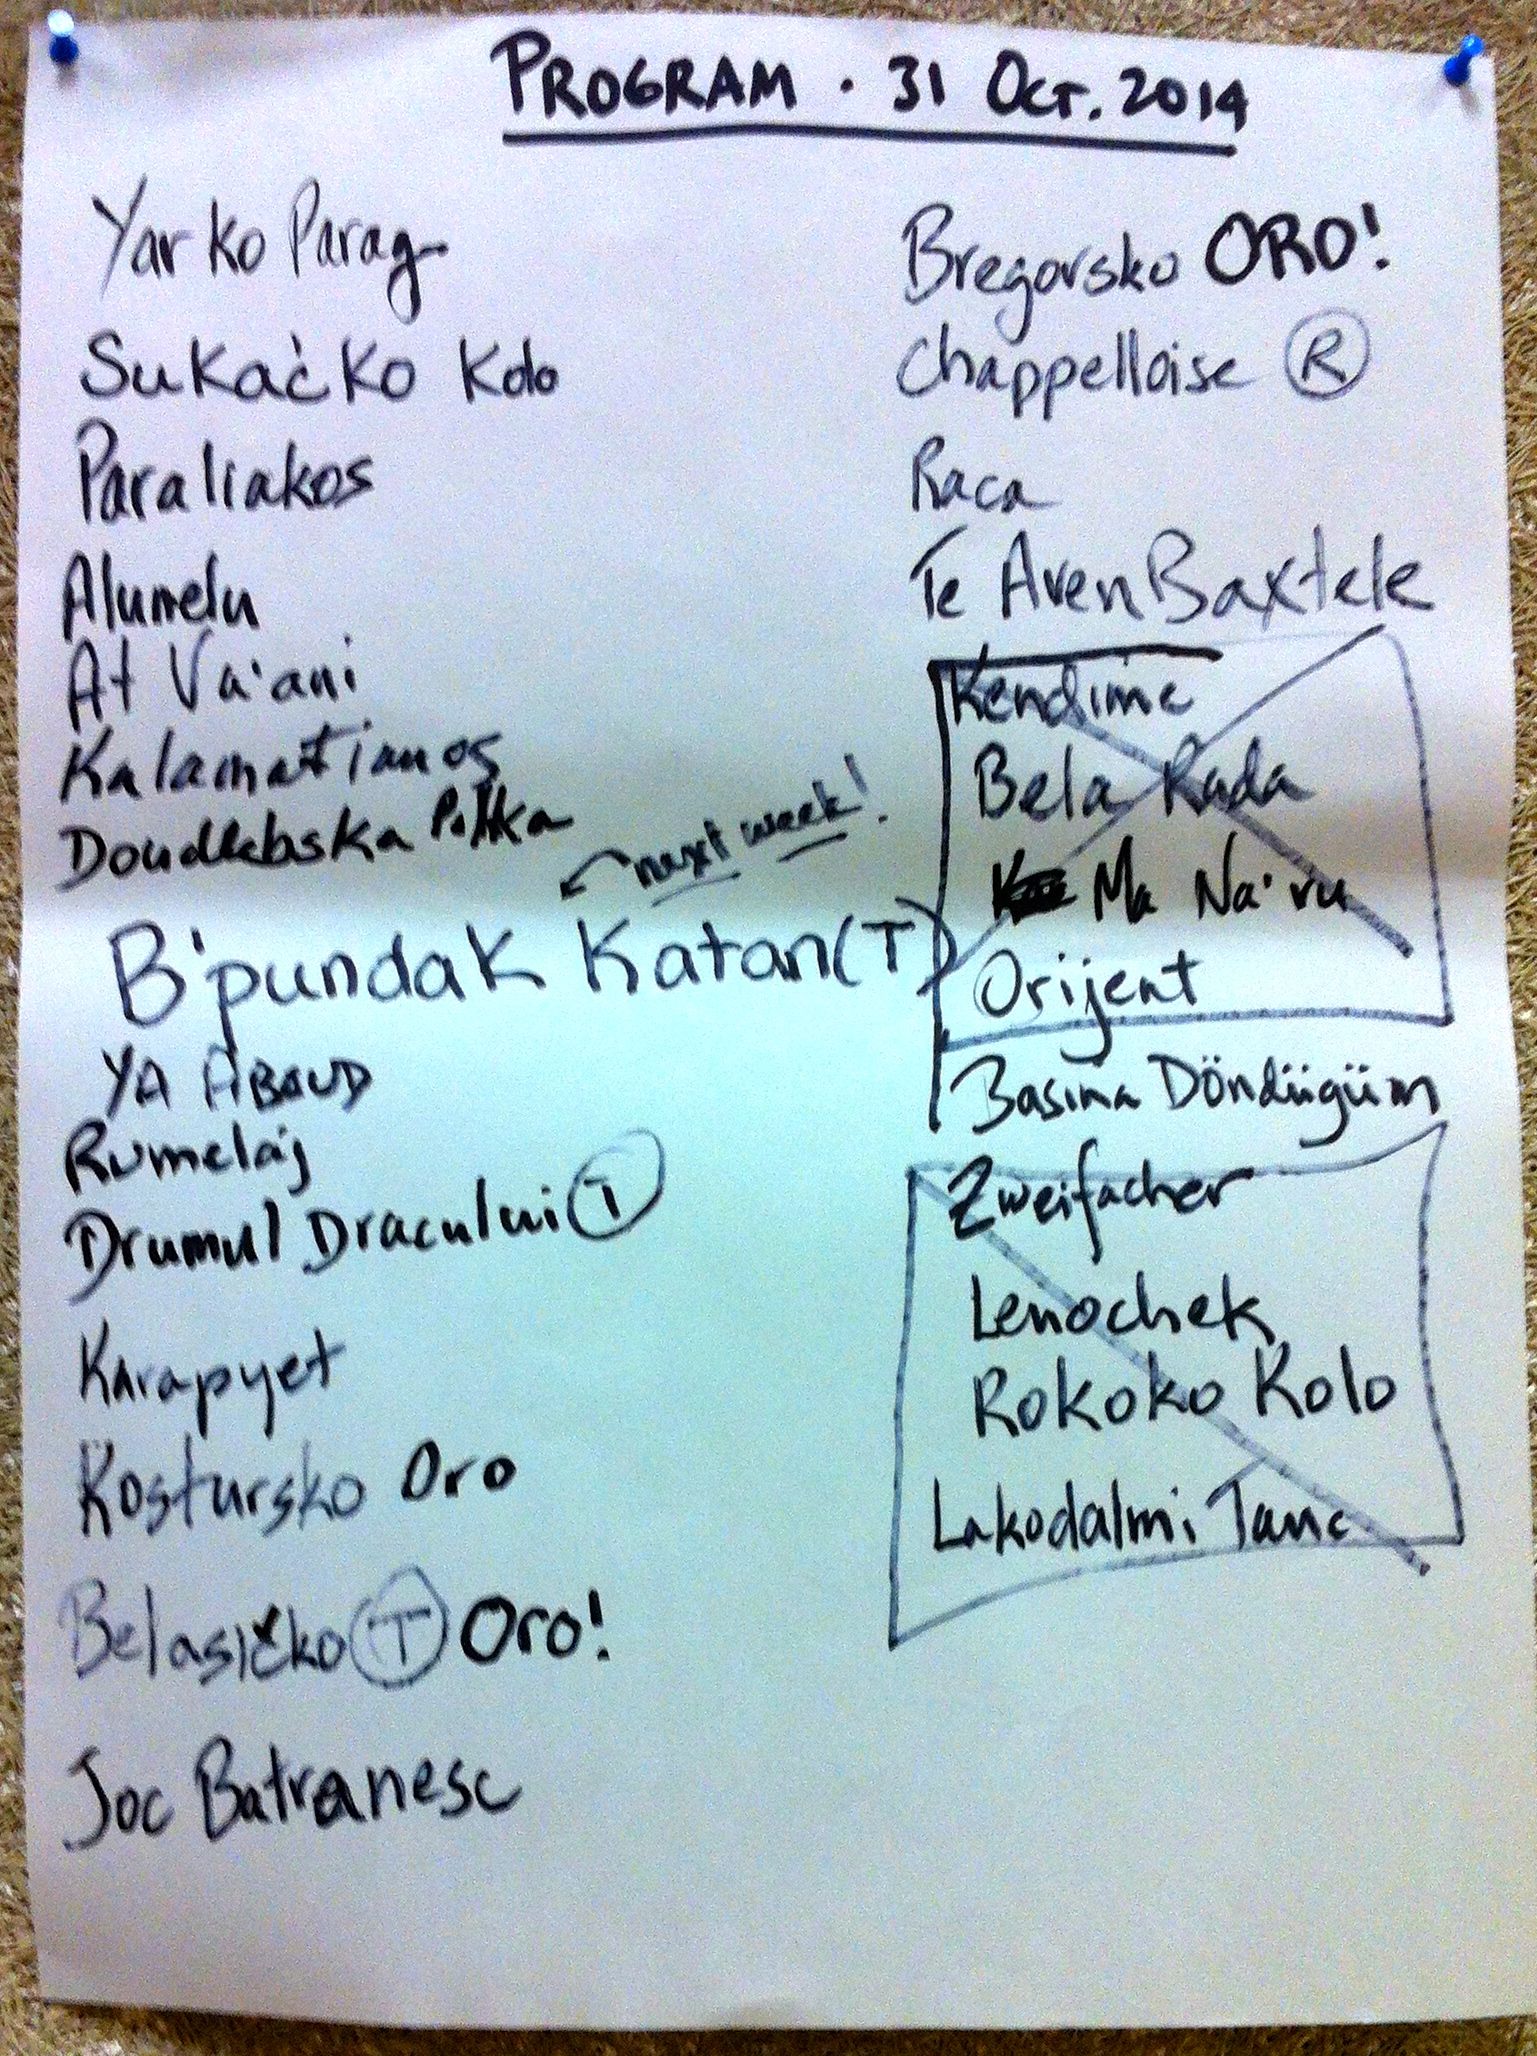 PROGRAM · 31 OCT. 2014
Yarko Parag
Sukačko Kolo
Paraliakos
Alunelu
At Va'ani
Kalamatianos
Doudlebska Polka
next week!
B'pundak Katan (T)
YA ABOUD
Rumelaj
Drumul Dracului T
Karapyet
Kostursko Oro
Belasičko T Oro!
Joc Batranesc
Bregovsko ORO!
Chappelloise R
Raca
Te Aven Baxtele
Kendime
Bela Rada
Ma Na'vu
Orijent
Basina Döndügüm
Zweifacher
Lenochek
Rokoko Kolo
Lakodalmi Tanc